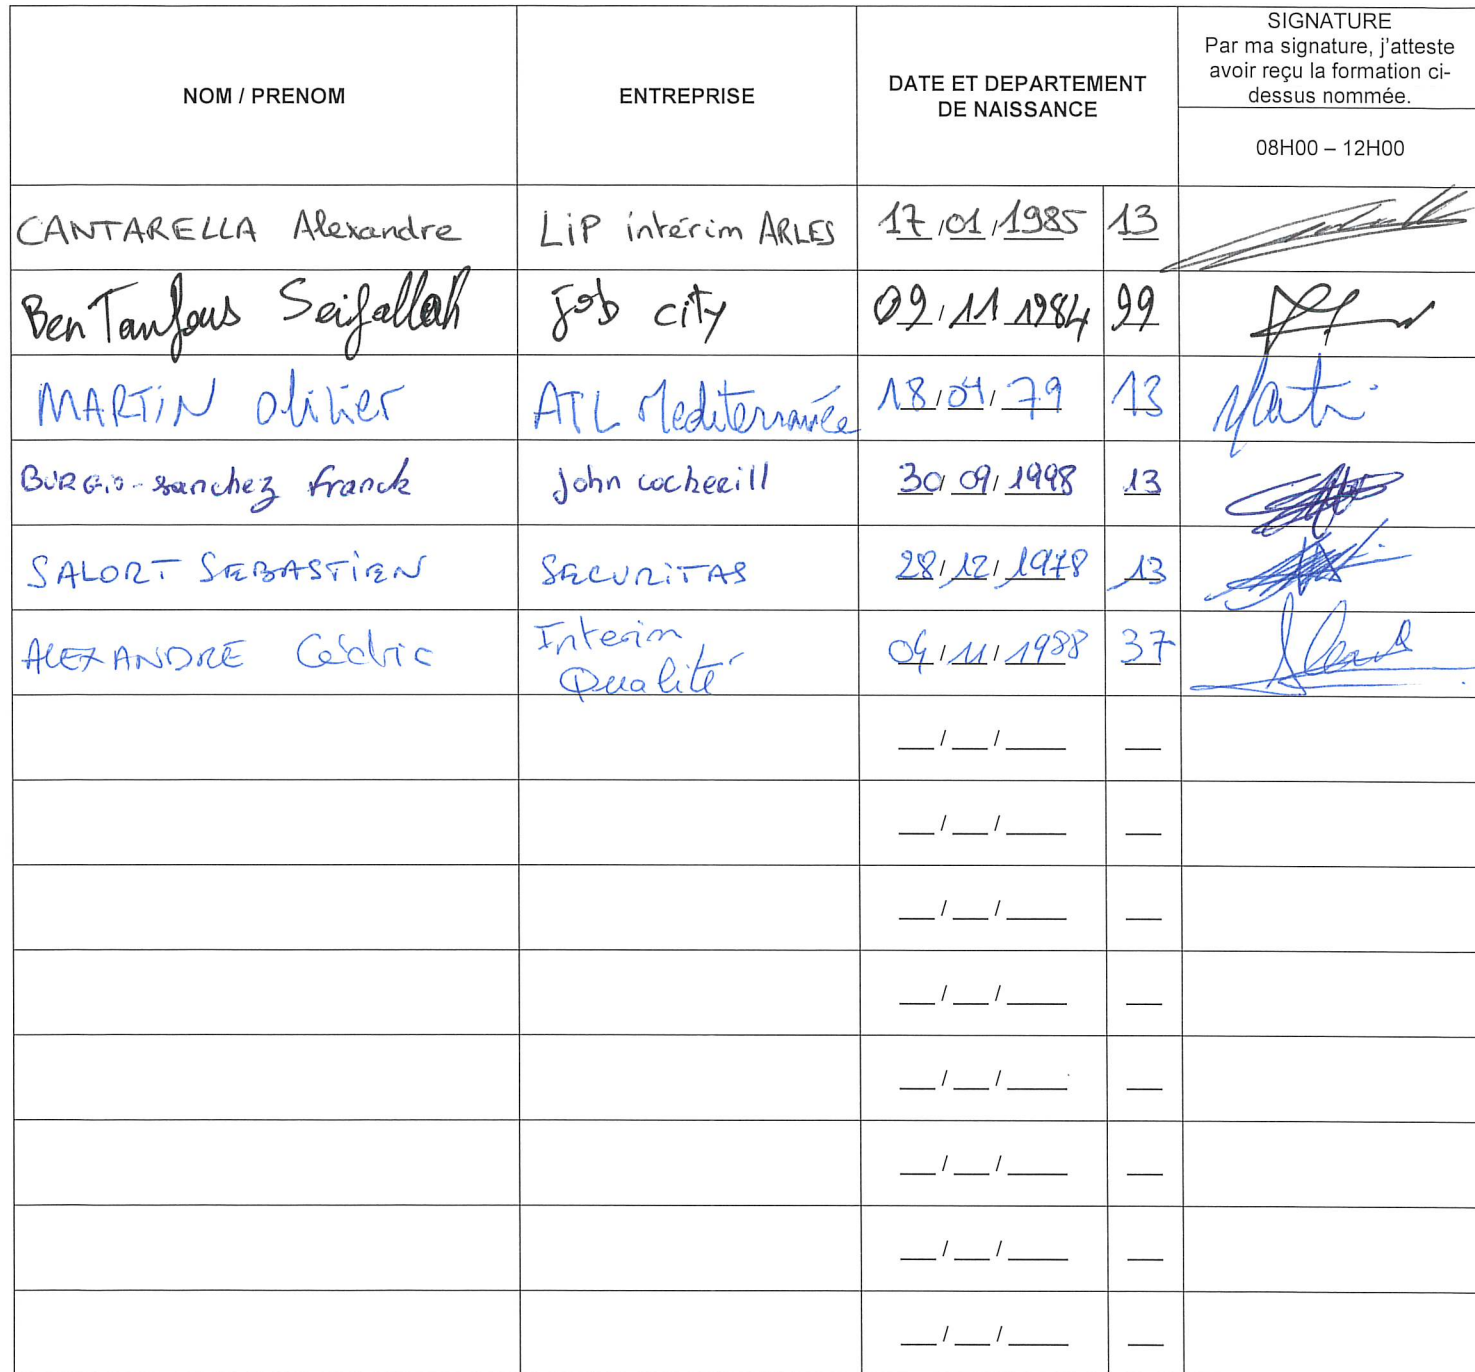 NOM / PRENOM
ENTREPRISE
DATE ET DEPARTEMENT
DE NAISSANCE
SIGNATURE
Par ma signature, j'atteste
avoir reçu la formation ci-
dessus nommée.
08H00 – 12H00
CANTARELLA Alexandre LiP intérim ARLES 17/01/1985 13
Ben Tanfous Seifallah Job city 09/11/1984 99
MARTiN Olivier ATL Mediterranée 18/04/79 13 Marti
BURGiO-sanchez franck John cockerill 30/09/1998 13
SALORT SEBASTiEN SECURiTAS 28/12/1978 13
ALEXANDRE Cédric Interim
Qualité 04/11/1988 37
__/__/____ __
__/__/____ __
__/__/____ __
__/__/____ __
__/__/____ __
__/__/____ __
__/__/____ __
__/__/____ __